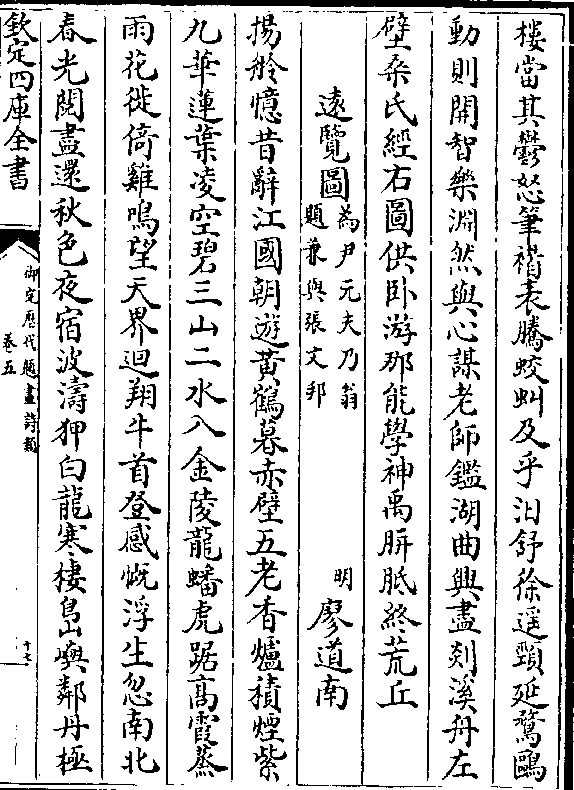 樓當其鬱怒筆褶表騰蛟虯及乎汨舒徐遥頸延鶩鷗
動則開智樂淵然與心謀老師鑑湖曲興盡剡溪舟左
壁桑氏經右圖供卧游那能學神禹胼胝終荒丘
遠覽圖為尹元夫乃翁
題兼與張文邦
明廖道南
揚舲憶昔辭江國朝遊黄鶴暮赤壁五老香爐積煙紫
九華蓮葉凌空碧三山二水入金陵龍蟠虎踞高霞蒸
雨花徙倚雞鳴望天界迴翔牛首登感慨浮生忽南北
春光閱盡還秋色夜宿波濤狎白龍寒棲島嶼鄰丹極
欽定四庫全書
御定歷代題畫詩類
卷五
十七